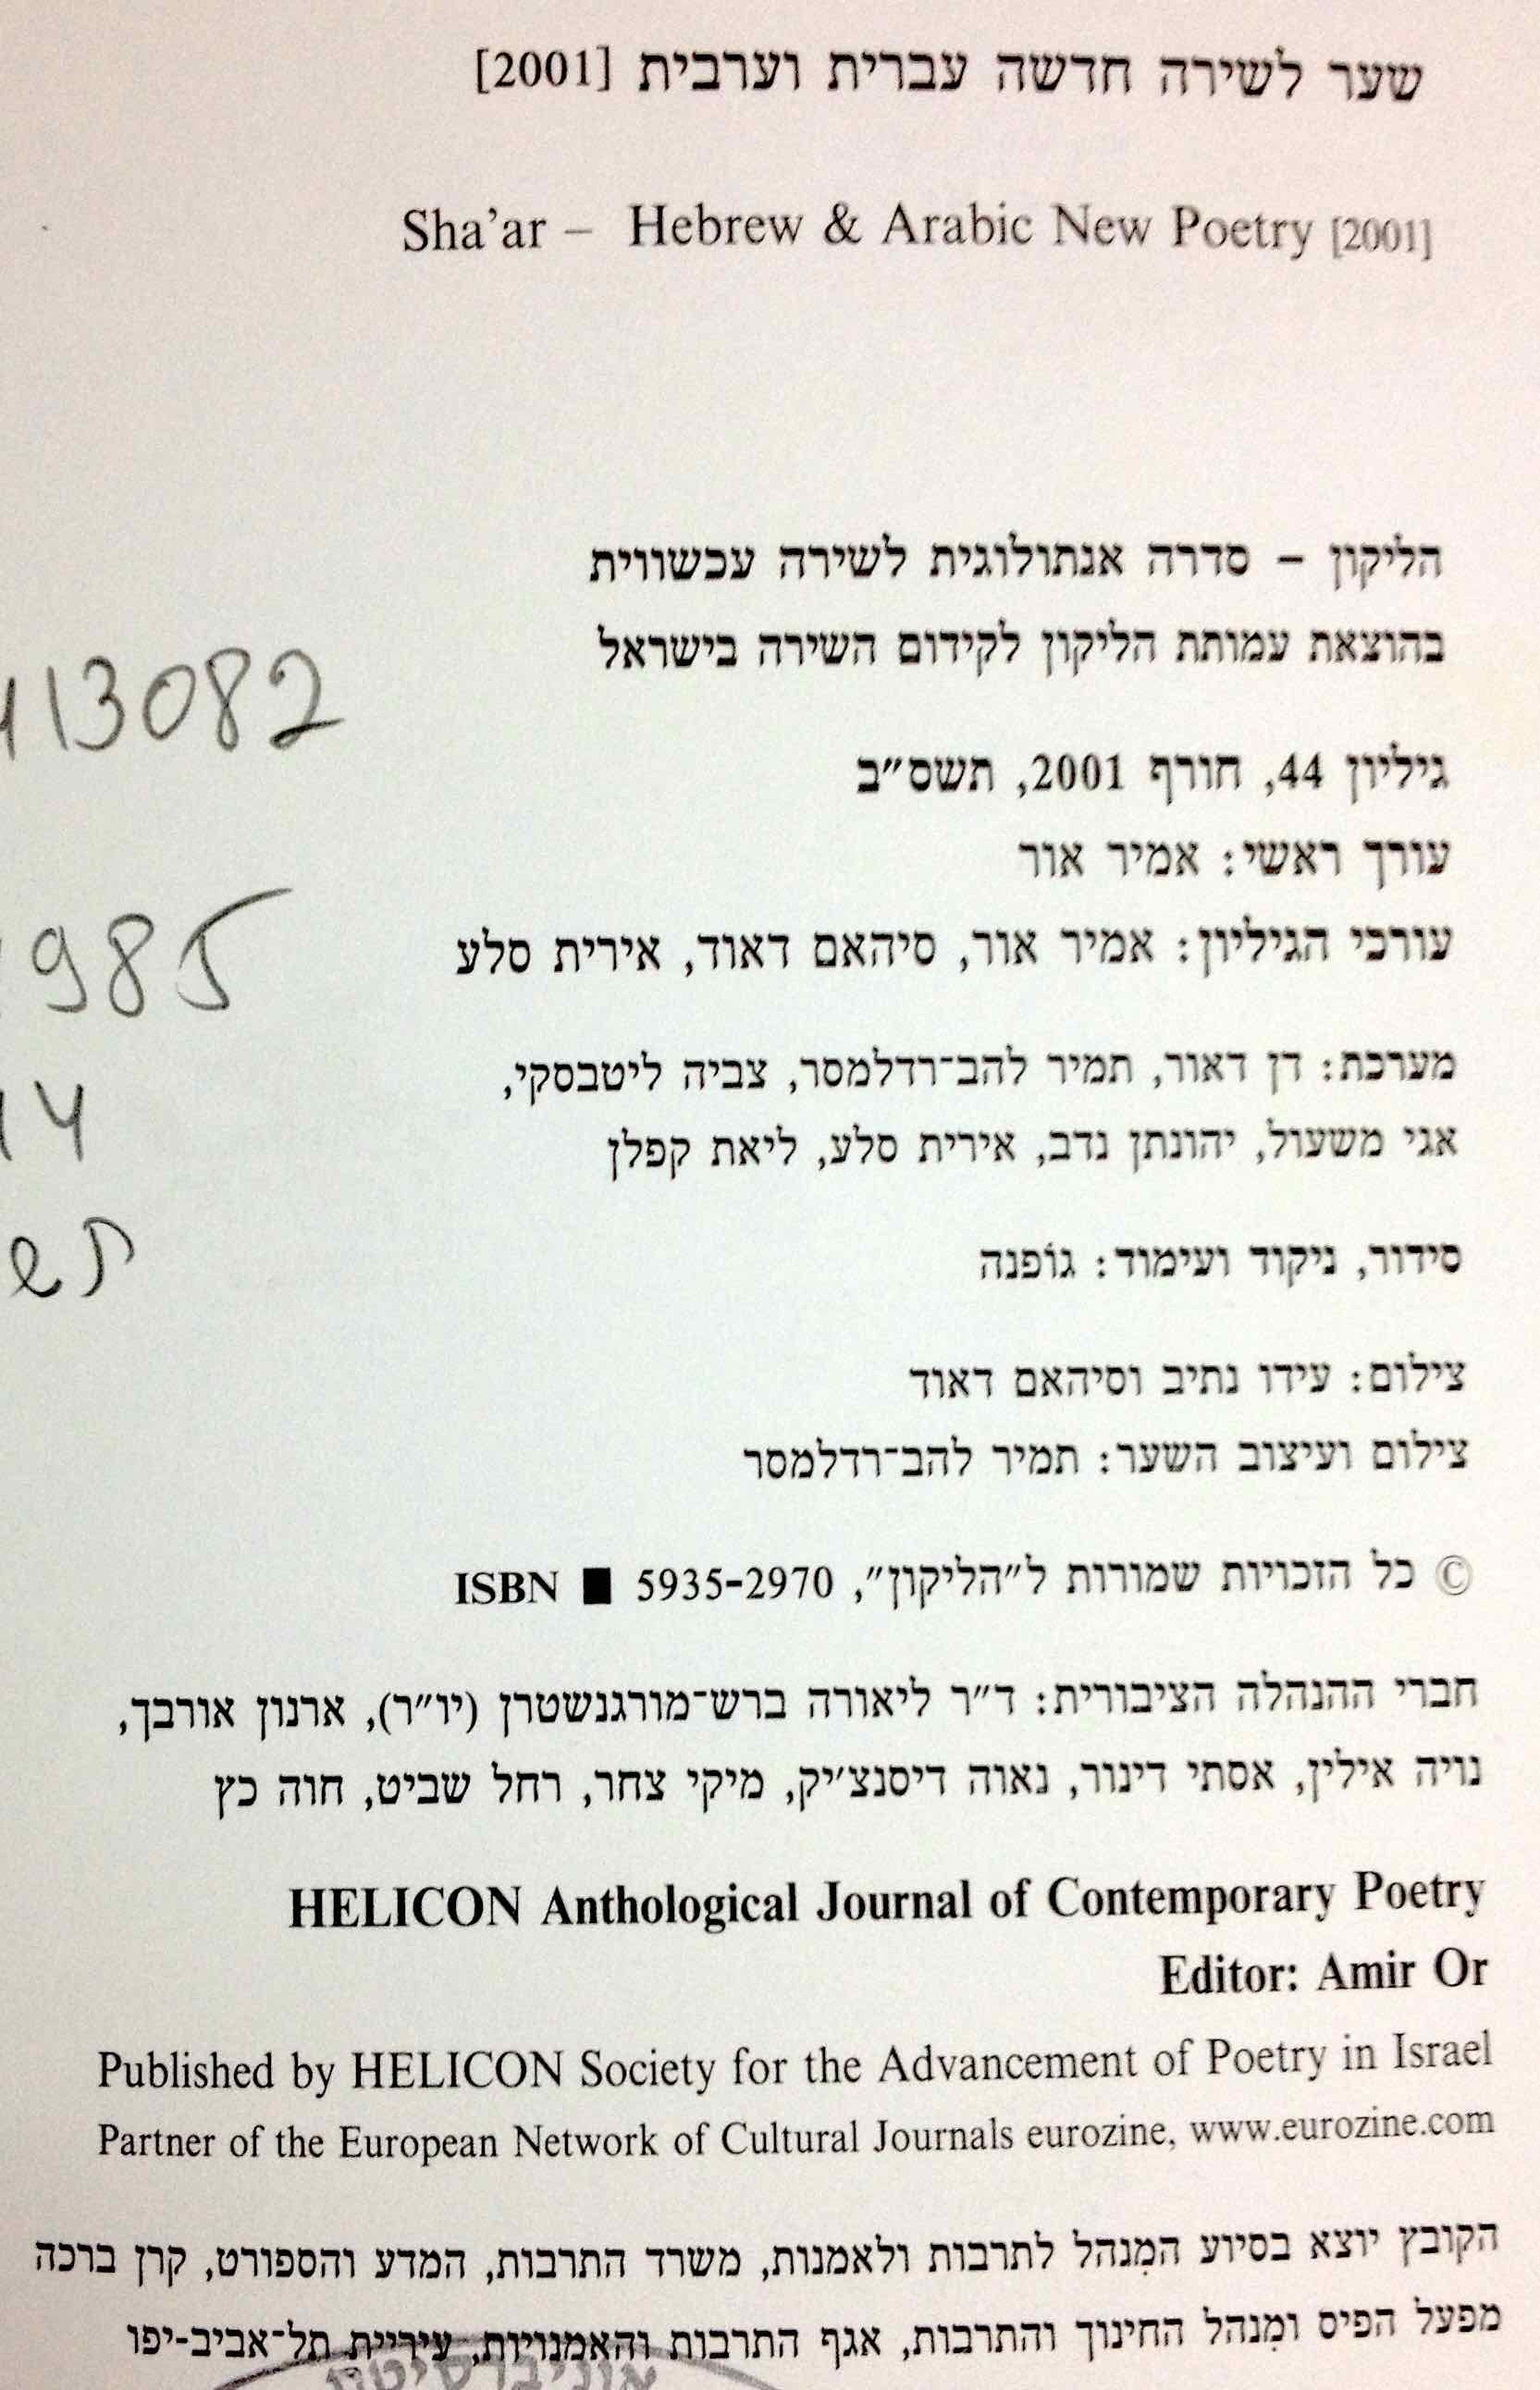 שער לשירה חדשה עברית וערבית [2001]
Sha'ar – Hebrew & Arabic New Poetry [2001]
הליקון – סדרה אנתולוגית לשירה עכשווית
בהוצאת עמותת הליקון לקידום השירה בישראל
113082
גיליון 44, חורף 2001, תשס"ב
עורך ראשי: אמיר אור
985
עורכי הגיליון: אמיר אור, סיהאם דאוד, אירית סלע
מערכת: דן דאור, תמיר להב־רדלמסר, צביה ליטבסקי,
אגי משעול, יהונתן נדב, אירית סלע, ליאת קפלן
סידור, ניקוד ועימוד: גוֹפנה
צילום: עידו נתיב וסיהאם דאוד
צילום ועיצוב השער: תמיר להב־רדלמסר
© כל הזכויות שמורות ל"הליקון", ISBN ■ 5935-2970
חברי ההנהלה הציבורית: ד"ר ליאורה ברש־מורגנשטרן (יו"ר), ארנון אורבך,
נויה אילין, אסתי דינור, נאוה דיסנצ'יק, מיקי צחר, רחל שביט, חוה כץ
HELICON Anthological Journal of Contemporary Poetry
Editor: Amir Or
Published by HELICON Society for the Advancement of Poetry in Israel
Partner of the European Network of Cultural Journals eurozine, www.eurozine.com
הקובץ יוצא בסיוע המִנהל לתרבות ולאמנות, משרד התרבות, המדע והספורט, קרן ברכה
מפעל הפיס ומִנהל החינוך והתרבות, אגף התרבות והאמנויות, עיריית תל־אביב-יפו
אוניברסיטת